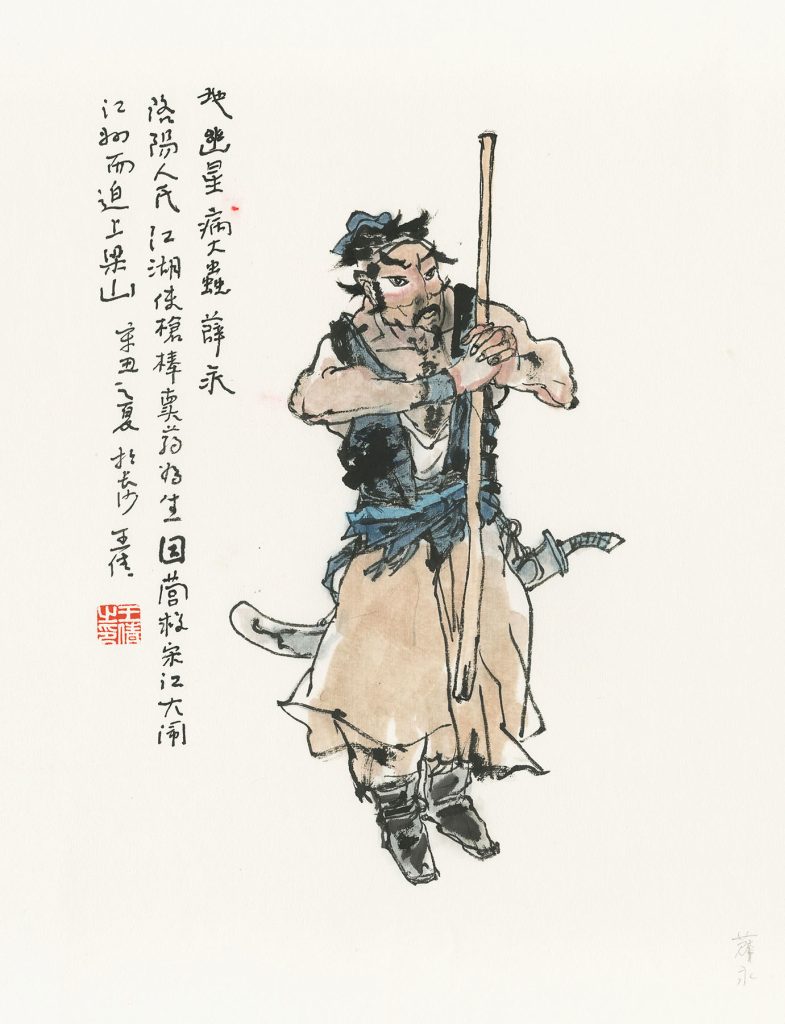 地幽星 病大蟲 薛永
洛陽人氏 江湖使槍棒賣药为生 因营救宋江大闹
江州而迫上梁山 辛丑之夏 於长沙 王倩
王倩之印
薛永